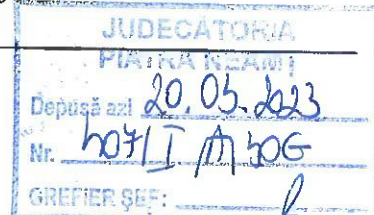 JUDECĂTORIA
PIATRA NEAMŢ
Depusă azi 20.05.2023
Nr.
GREFIER ŞEF: